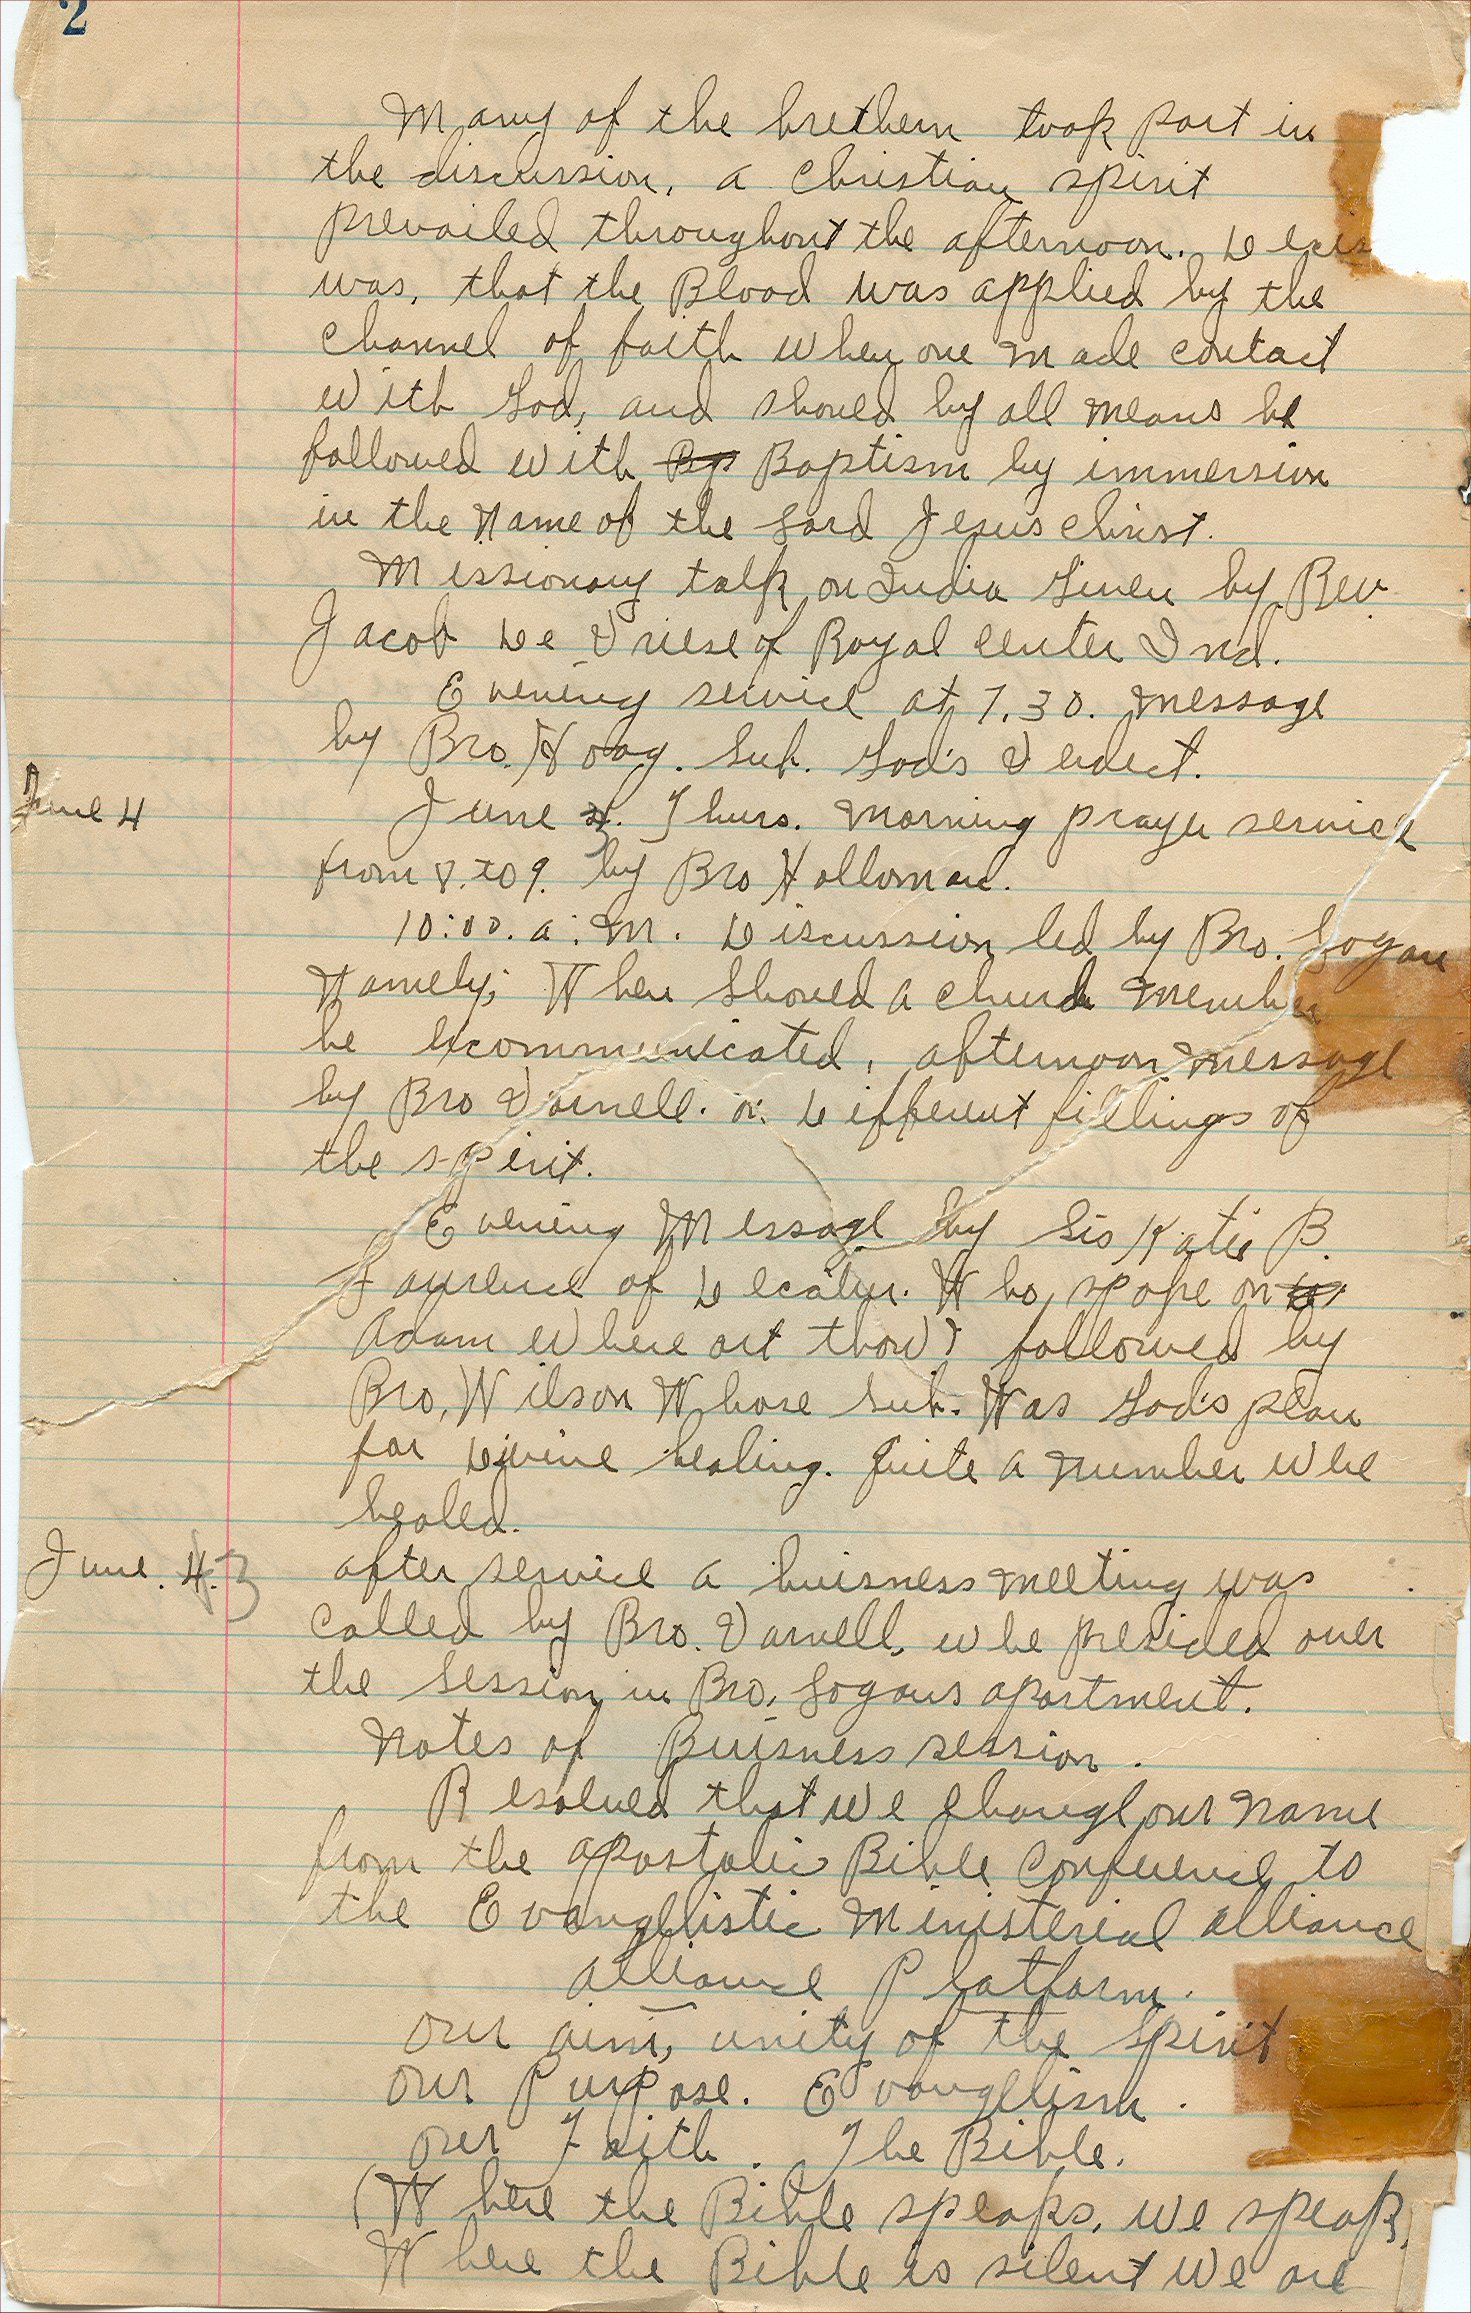 2
Many of the brethern took part in
the discussion, a Christian spirit
prevailed throughout the afternoon.
was, that the Blood was applied by the
channel of faith when one made contact
with God, and should by all means be
followed with Bap Baptism by immersion
in the Name of the Lord Jesus Christ.
Missionary talk on India Given by Rev
Jacob De Vriese of Royal Center Ind.
Evening service at 7.30. Message
by Bro. Hoag. Sub. God's Verdect.
June 4
June 4. Thurs. Morning prayer service
from 8. to 9. by Bro Holloman.
10:00. a:m. Discussion led by Bro. Logan
Namely; When Should a church Member
be excommunicated, afternoon message
by Bro Varnell. on Different fillings of
the spirit.
Evening Message by Sis Katie B.
Laurence of Decatur. Who, spoke on
Adam where art thou? followed by
Bro, Wilson Whose Sub. Was God's plan
for Divine healing. Quite a number whe
healed.
June. 4. 3
after service a buisness meeting was
called by Bro. Varnell, whe presided over
the Session in Bro, Logans apartment.
Notes of Buisness session.
Resolved that we change our name
from the apostolic Bible Conference to
the Evanglistic Ministerial alliance
alliance Platform.
our aim, unity of the Spirit
our Purpose. Evanglism.
our Faith. The Bible.
(Where the Bible speaks, we speak,
Where the Bible is silent we are